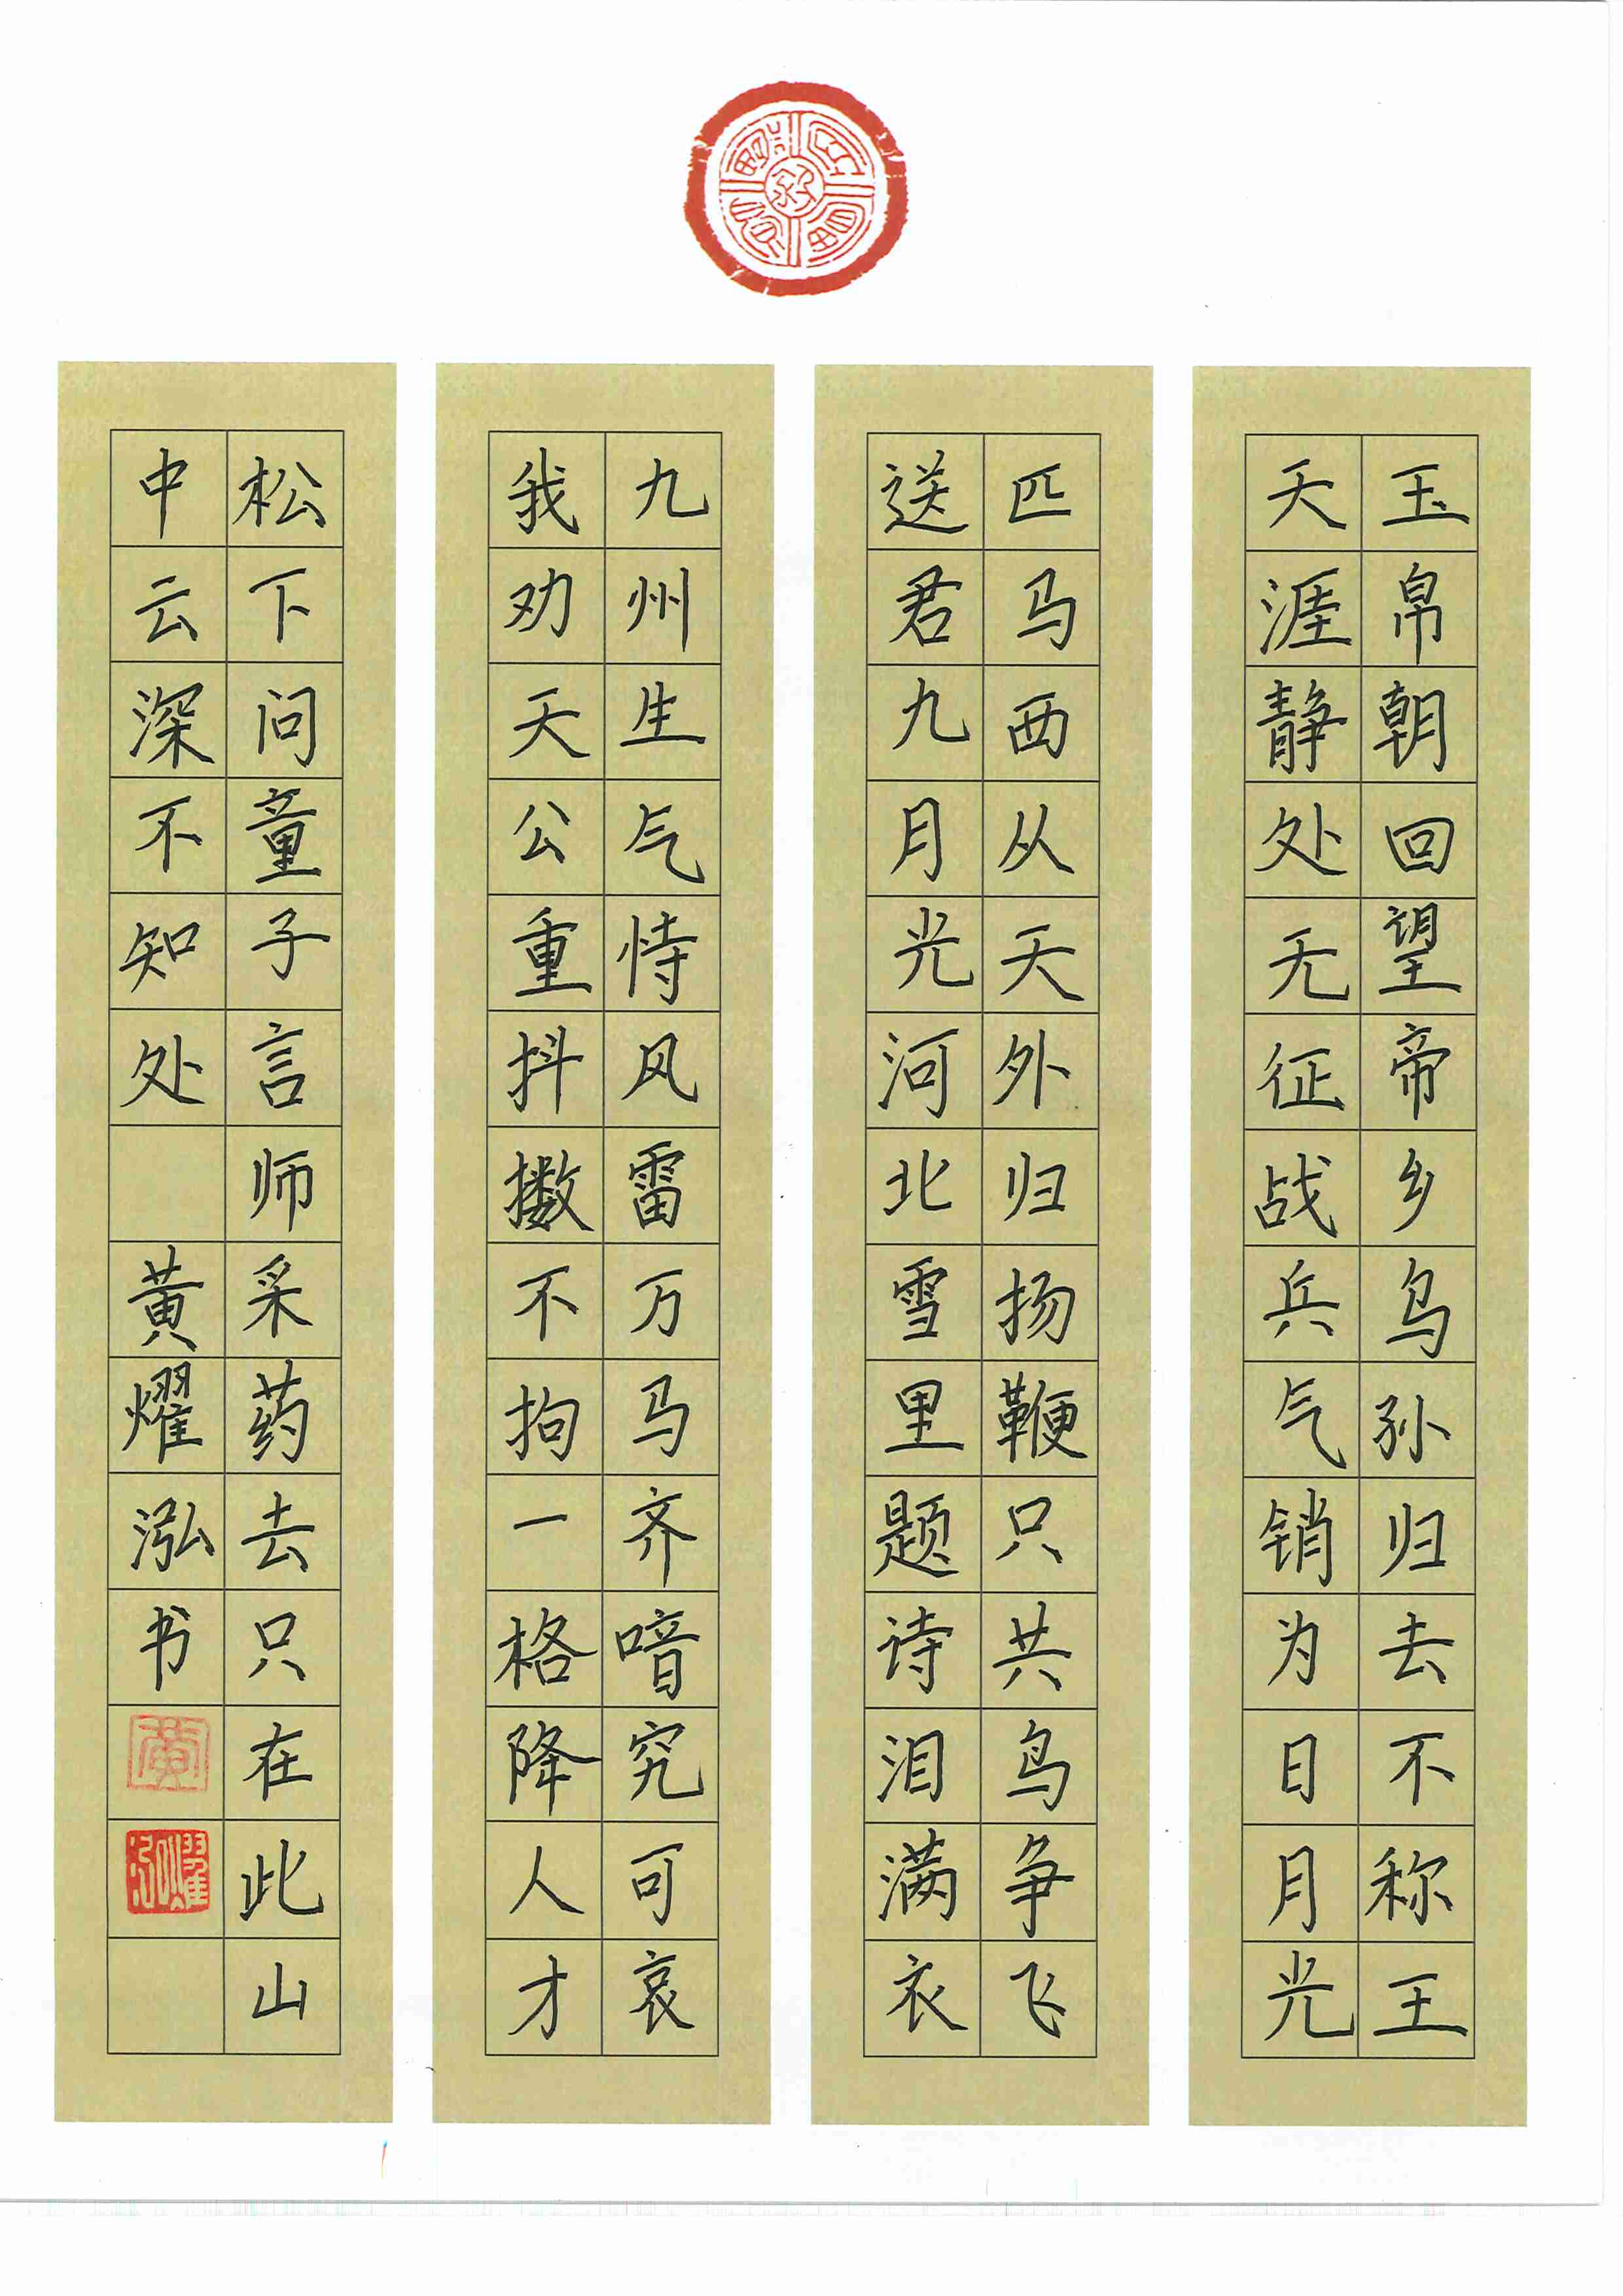 玉帛朝回望帝乡乌孙归去不称王
天涯静处无征战兵气销为日月光
匹马西从天外归扬鞭只共鸟争飞
送君九月光河北雪里题诗泪满衣
九州生气恃风雷万马齐喑究可哀
我劝天公重抖擞不拘一格降人才
松下问童子言师采药去只在此山
中云深不知处 黄燿泓书
黄
燿泓